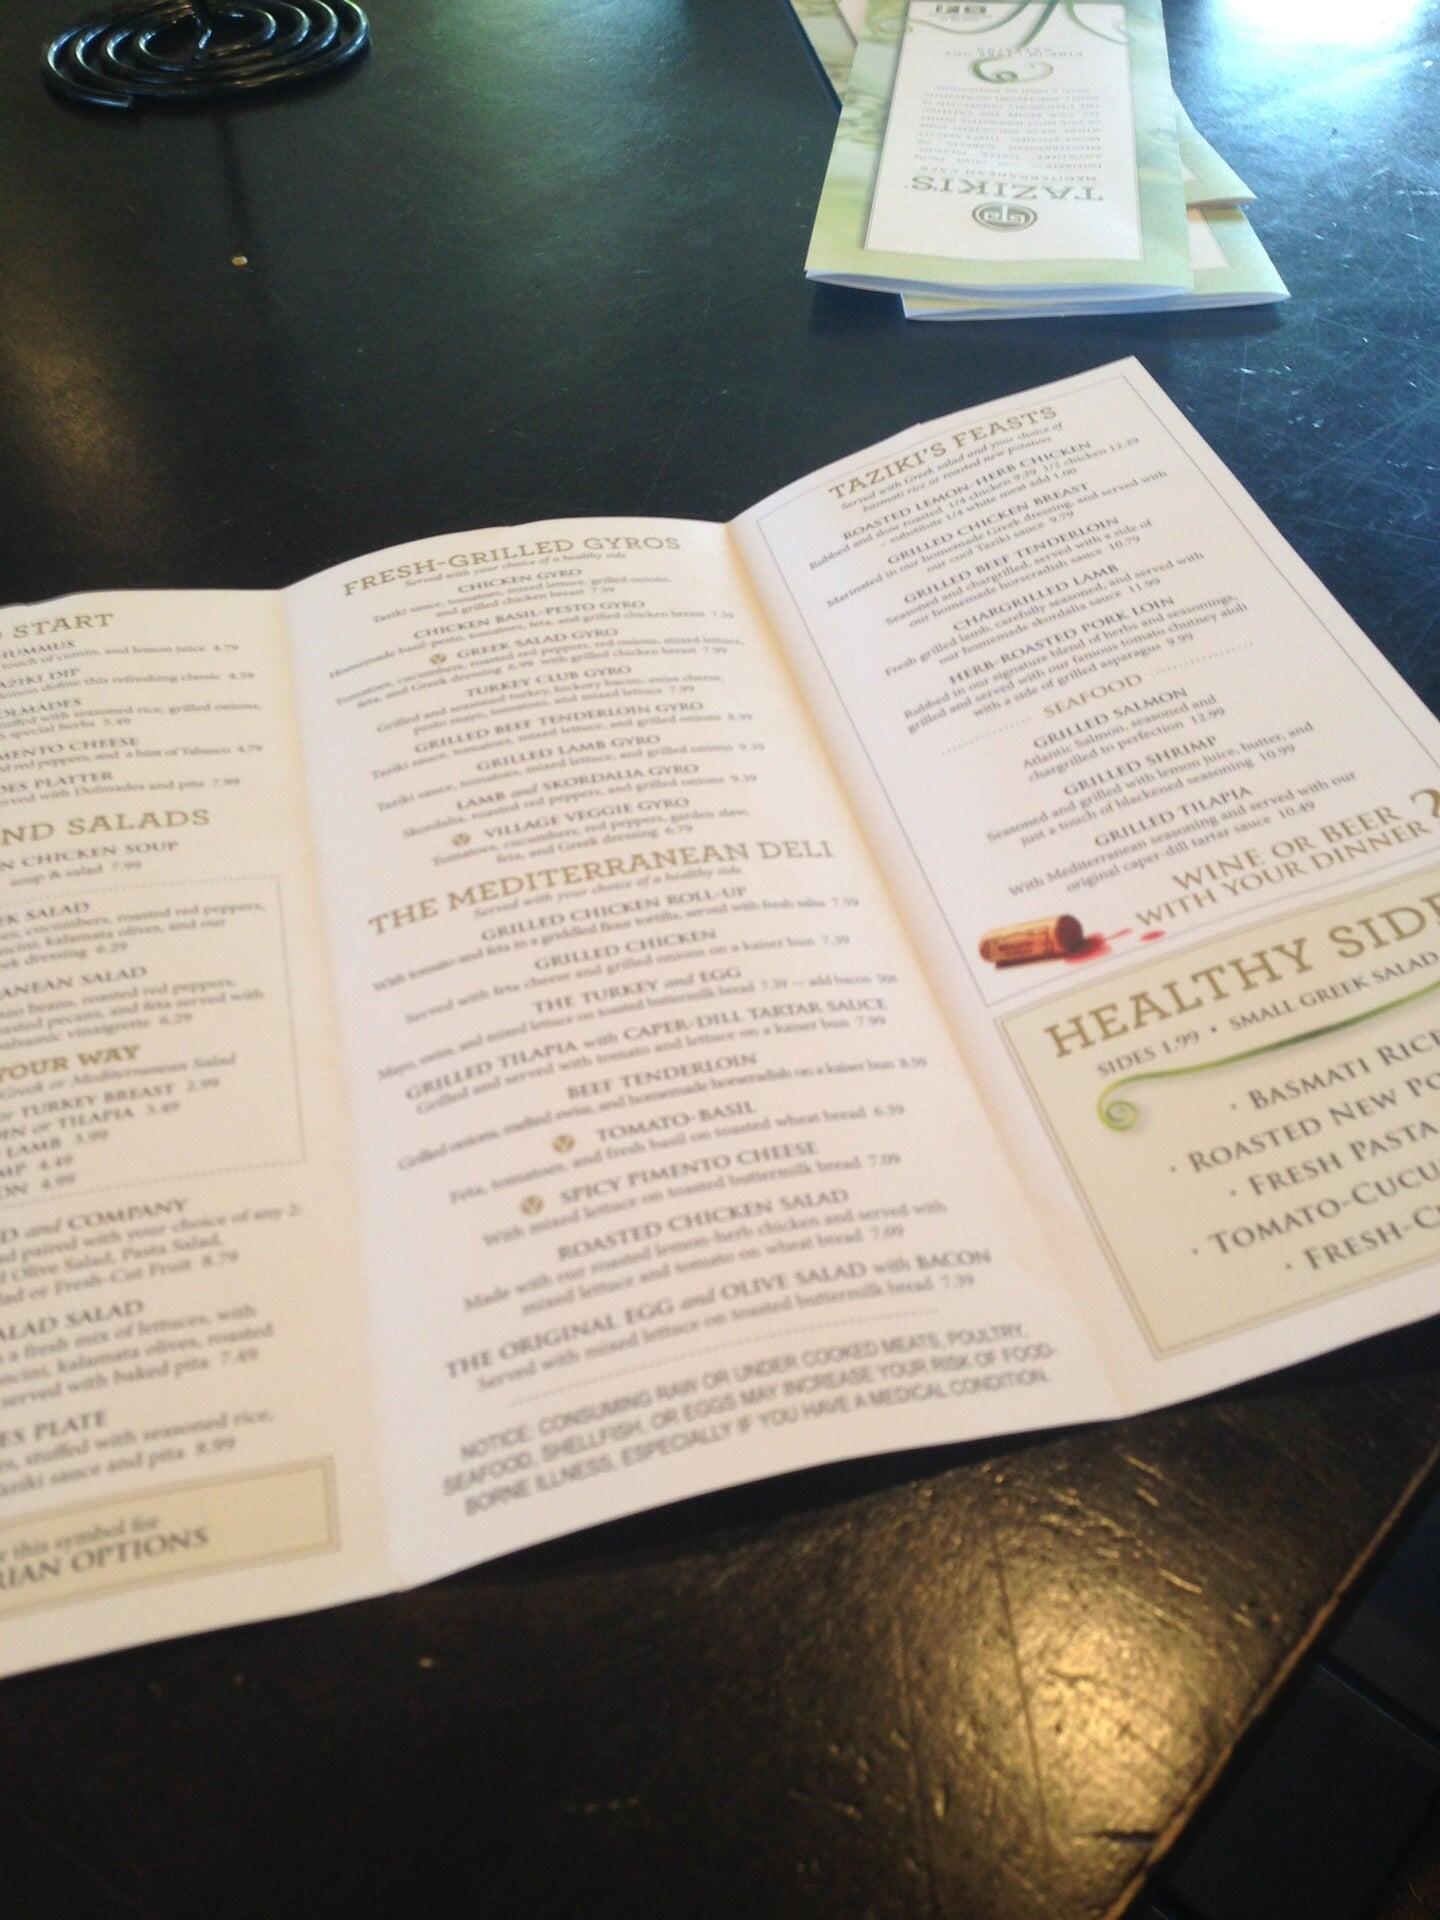 START
HUMMUS
touch of cumin, and lemon juice 4.79
DIP
lemon define this refreshing classic 4.59
DOLMADES
stuffed with seasoned rice, grilled onions,
special herbs 5.49
CHEESE
red peppers, and a hint of Tabasco 4.79
PLATTER
served with Dolmades and pita 7.99
AND SALADS
CHICKEN SOUP
soup & salad 7.99
SALAD
cucumbers, roasted red peppers,
kalamata olives, and our
dressing 6.29
SALAD
beans, roasted red peppers,
pecans, and feta served with
balsamic vinaigrette 6.29
YOUR WAY
Greek or Mediterranean Salad
or TURKEY BREAST 2.99
or TILAPIA 3.49
LAMB 3.99
4.49
4.99
and COMPANY
paired with your choice of any 2:
Olive Salad, Pasta Salad,
or Fresh-Cut Fruit 8.79
SALAD
a fresh mix of lettuces, with
kalamata olives, roasted
served with baked pita 7.49
PLATE
stuffed with seasoned rice,
sauce and pita 8.99
this symbol for
OPTIONS
FRESH-GRILLED GYROS
Served with your choice of a healthy side
CHICKEN GYRO
Taziki sauce, tomatoes, mixed lettuce, grilled onions,
and grilled chicken breast 7.39
CHICKEN BASIL-PESTO GYRO
Homemade basil-pesto, tomatoes, feta, and grilled chicken breast 7.59
GREEK SALAD GYRO
Tomatoes, cucumbers, roasted red peppers, red onions, mixed lettuce,
feta, and Greek dressing 6.99 with grilled chicken breast 7.99
TURKEY CLUB GYRO
Grilled and seasoned turkey, hickory bacon, swiss cheese,
pesto mayo, tomatoes, and mixed lettuce 7.99
GRILLED BEEF TENDERLOIN GYRO
Taziki sauce, tomatoes, mixed lettuce, and grilled onions 8.39
GRILLED LAMB GYRO
Taziki sauce, tomatoes, mixed lettuce, and grilled onions 9.39
LAMB and SKORDALIA GYRO
Skordalia, roasted red peppers, and grilled onions 9.39
VILLAGE VEGGIE GYRO
Tomatoes, cucumbers, red peppers, garden slaw,
feta, and Greek dressing 6.79
THE MEDITERRANEAN DELI
Served with your choice of a healthy side
GRILLED CHICKEN ROLL-UP
With tomato and feta in a griddled flour tortilla, served with fresh salsa 7.59
GRILLED CHICKEN
Served with feta cheese and grilled onions on a kaiser bun 7.39
THE TURKEY and EGG
Mayo, swiss, and mixed lettuce on toasted buttermilk bread 7.39 — add bacon 50¢
GRILLED TILAPIA with CAPER-DILL TARTAR SAUCE
Grilled and served with tomato and lettuce on a kaiser bun 7.99
BEEF TENDERLOIN
Grilled onions, melted swiss, and homemade horseradish on a kaiser bun 8.59
TOMATO-BASIL
Feta, tomatoes, and fresh basil on toasted wheat bread 6.39
SPICY PIMENTO CHEESE
With mixed lettuce on toasted buttermilk bread 7.09
ROASTED CHICKEN SALAD
Made with our roasted lemon-herb chicken and served with
mixed lettuce and tomato on wheat bread 7.09
THE ORIGINAL EGG and OLIVE SALAD with BACON
Served with mixed lettuce on toasted buttermilk bread 7.39
NOTICE: CONSUMING RAW OR UNDER COOKED MEATS, POULTRY,
SEAFOOD, SHELLFISH, OR EGGS MAY INCREASE YOUR RISK OF FOOD-
BORNE ILLNESS, ESPECIALLY IF YOU HAVE A MEDICAL CONDITION.
TAZIKI'S FEASTS
Served with Greek salad and your choice of
basmati rice or roasted new potatoes
ROASTED LEMON-HERB CHICKEN
Rubbed and slow roasted 1/4 chicken 9.29 1/2 chicken 12.29
- substitute 1/4 white meat add 1.00
GRILLED CHICKEN BREAST
Marinated in our homemade Greek dressing, and served with
our cool Taziki sauce 9.79
GRILLED BEEF TENDERLOIN
Seasoned and chargrilled, served with a side of
our homemade horseradish sauce 10.79
CHARGRILLED LAMB
Fresh grilled lamb, carefully seasoned, and served with
our homemade skordalia sauce 11.99
HERB-ROASTED PORK LOIN
Rubbed in our signature blend of herbs and seasonings,
grilled and served with our famous tomato chutney aioli
with a side of grilled asparagus 9.99
SEAFOOD
GRILLED SALMON
Atlantic Salmon, seasoned and
chargrilled to perfection 12.99
GRILLED SHRIMP
Seasoned and grilled with lemon juice, butter, and
just a touch of blackened seasoning 10.99
GRILLED TILAPIA
With Mediterranean seasoning and served with our
original caper-dill tartar sauce 10.49
WINE OR BEER
WITH YOUR DINNER
HEALTHY SIDE
SIDES 1.99 • SMALL GREEK SALAD
· BASMATI RICE
· ROASTED NEW PO
· FRESH PASTA
· TOMATO-CUCU
· FRESH-CU
TAZIKI'S
MEDITERRANEAN CAFE
DINE IN TAKE OUT
CATERING